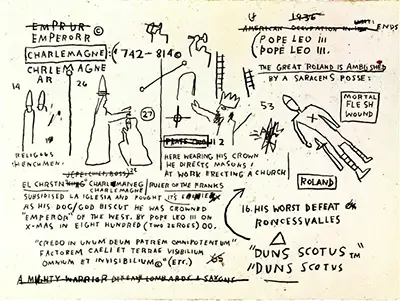 EMPRUR
EMPERORR
CHARLEMAGNE: (742-814©
CHRLEMAGNE
AR
14
26
27
RELIGOUS
HENCHMEN:
EL CHRSTN
SUBSIPISED LA IGLESIA AND FOUGHT ITS
AS HIS DOG/GOD BISCUT HE WAS CROWNED
"EMPEROR" OF THE WEST. BY POPE LEO III ON
X-MAS IN EIGHT HUNDRED (TWO ZEROES) 00.
"CREDO IN UNUM DEUM PATREM OMNIPOTENTUM"
FACTOREM CAELI ET TERRAE VISBILIUM
OMNIUM ET INVISIBILIUM©" (ETC.)
A MIGHTY WARRIOR
LOMBARDS & SAXONS
CHARLEMAGNE
RULER OF THE FRANKS
12
HERE WEARING HIS CROWN
HE DIRECTS MASONS!
AT WORK ERECTING A CHURCH
1936
AMERICAN OCCUPATION IN
ENDS
POPE LEO iii
POPE LEO III.
THE GREAT ROLAND IS AMBUSHED
BY A SARACENS POSSE:
53
MORTAL
FLESH
WOUND
ROLAND
16. HIS WORST DEFEAT
RONCESSVALLES
"DUNS SCOTUS™
"DUNS SCOTUS